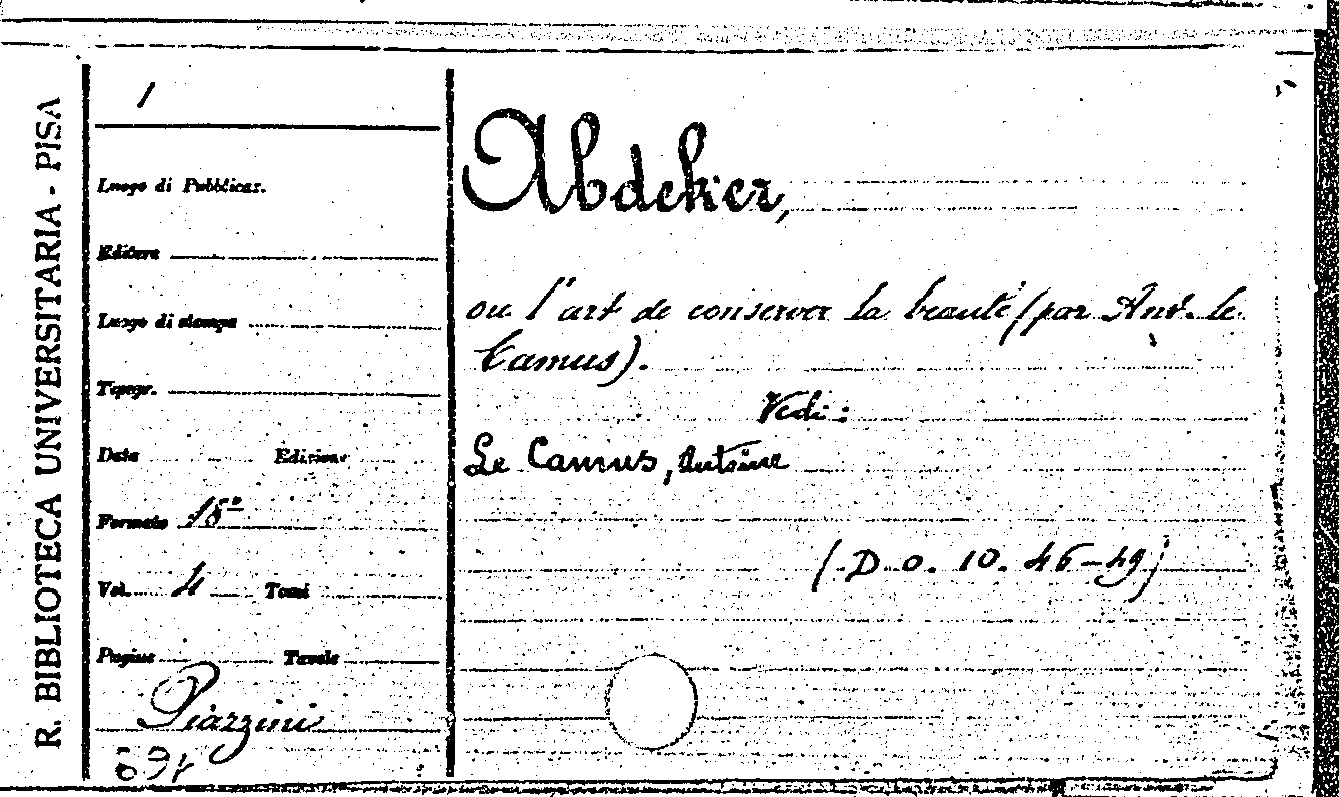 R. BIBLIOTECA UNIVERSITARIA - PISA
1
Luogo di Pubblicaz.
Editore
Luogo di stampa
Tipogr.
Data Edizione
Formato 18º
Vol. 4 Tomi
Pagine Tavole
Piazzini
Abdeker,
ou l'art de conserver la beauté (par Ant. le
Camus).
Vedi:
Le Camus, Antoine
(D. o. 10. 46-49)